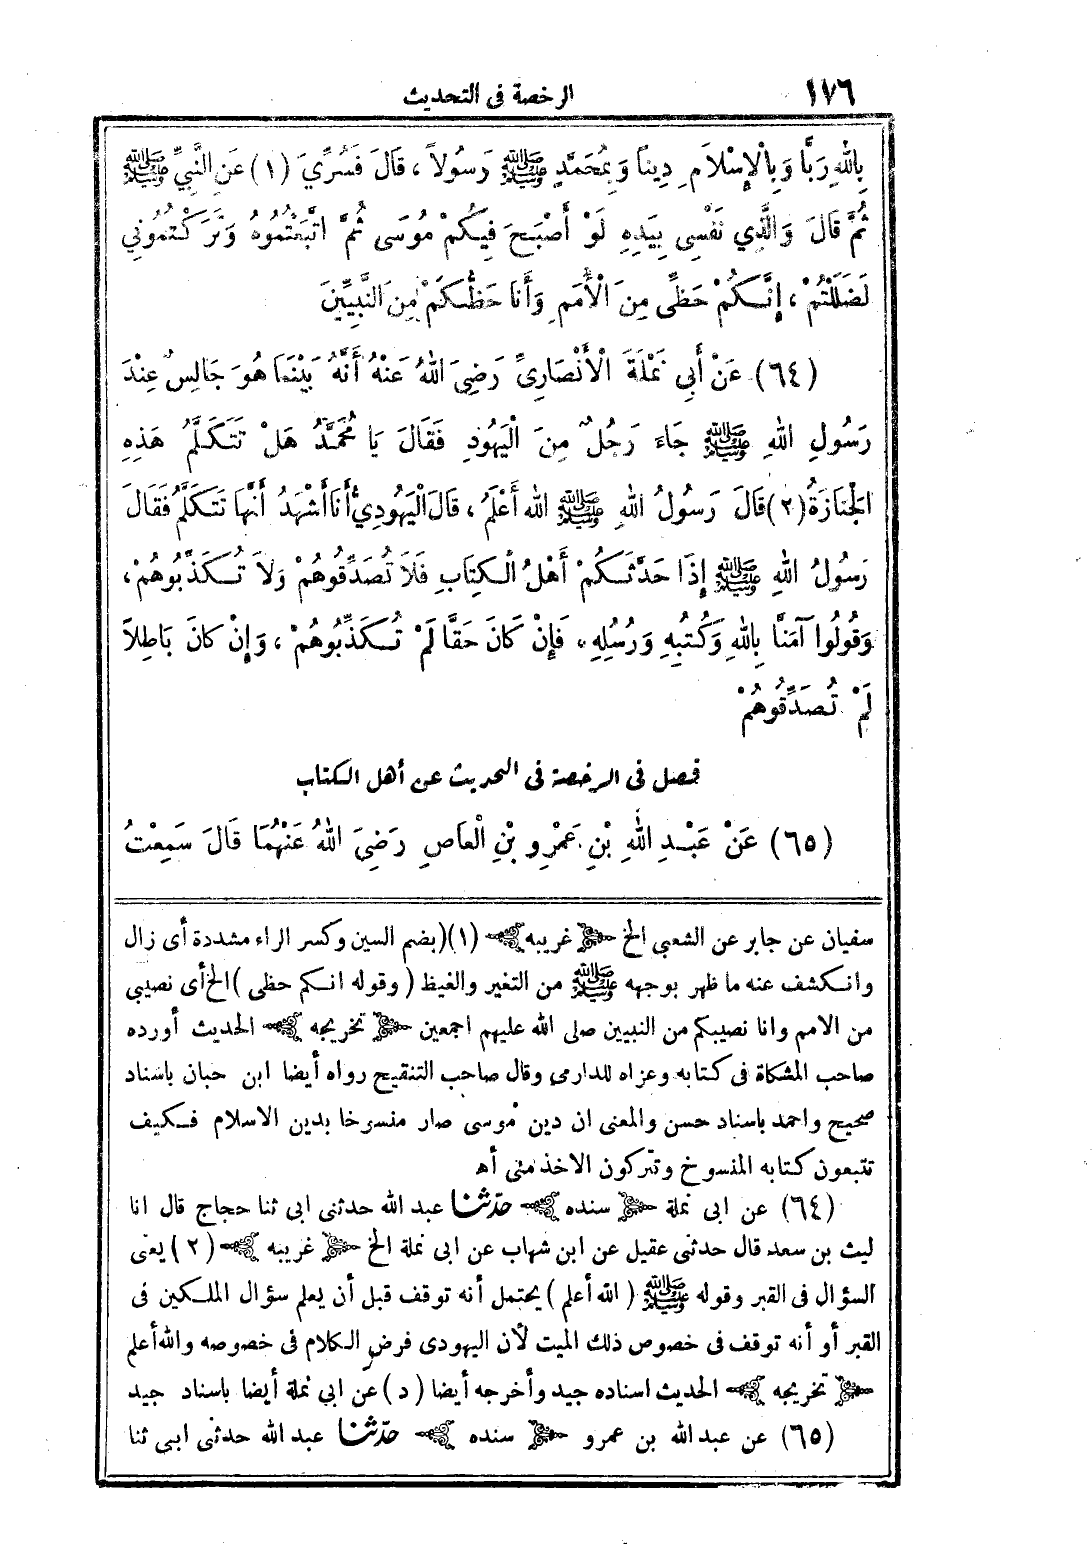 ١٧٦ الرخصة فى التحديث
بِاللهِ رَبًّا وَبِالْإِسْلَامِ دِينًا وَبِمُحَمَّدٍ ﷺ رَسُولاً، قَالَ فَسُرِّيَ (١) عَنِ النَّبِيِّ ﷺ
ثُمَّ قَالَ وَالَّذِي نَفْسِي بِيَدِهِ لَوْ أَصْبَحَ فِيكُمْ مُوسَى ثُمَّ اتَّبَعْتُمُوهُ وَتَرَكْتُمُونِي
لَضَلَلْتُمْ، إِنَّكُمْ حَظِّي مِنَ الْأُمَمِ وَأَنَا حَظُّكُمْ مِنَ النَّبِيِّينَ
(٦٤) عَنْ أَبِي نَمْلَةَ الْأَنْصَارِيِّ رَضِيَ اللهُ عَنْهُ أَنَّهُ بَيْنَمَا هُوَ جَالِسٌ عِنْدَ
رَسُولِ اللهِ ﷺ جَاءَ رَجُلٌ مِنَ الْيَهُودِ فَقَالَ يَا مُحَمَّدُ هَلْ تَتَكَلَّمُ هَذِهِ
الْجَنَازَةُ (٢) قَالَ رَسُولُ اللهِ ﷺ اللهُ أَعْلَمُ، قَالَ الْيَهُودِيُّ أَنَا أَشْهَدُ أَنَّهَا تَتَكَلَّمُ فَقَالَ
رَسُولُ اللهِ ﷺ إِذَا حَدَّثَكُمْ أَهْلُ الْكِتَابِ فَلَا تُصَدِّقُوهُمْ وَلَا تُكَذِّبُوهُمْ،
وَقُولُوا آمَنَّا بِاللهِ وَكُتُبِهِ وَرُسُلِهِ، فَإِنْ كَانَ حَقًّا لَمْ تُكَذِّبُوهُمْ، وَإِنْ كَانَ بَاطِلاً
لَمْ تُصَدِّقُوهُمْ
فصل فى الرخصة فى التحديث عن أهل الكتاب
(٦٥) عَنْ عَبْدِ اللهِ بْنِ عَمْرِو بْنِ الْعَاصِ رَضِيَ اللهُ عَنْهُمَا قَالَ سَمِعْتُ
سفيان عن جابر عن الشعبي الخ ﴿غريبه﴾ (١)(بضم السين وكسر الراء مشددة أى زال
وانكشف عنه ما ظهر بوجهه ﷺ من التغير والغيظ (وقوله انكم حظى) الخ أى نصيبى
من الامم وانا نصيبكم من النبيين صلى الله عليهم اجمعين ﴿تخريجه﴾ الحديث أورده
صاحب المشكاة فى كتابه وعزاه للدارمى وقال صاحب التنقيح رواه أيضا ابن حبان باسناد
صحيح واحمد باسناد حسن والمعنى ان دين موسى صار منسوخا بدين الاسلام فكيف
تتبعون كتابه المنسوخ وتتركون الاخذ منى أه
(٦٤) عن ابى نملة ﴿سنده﴾ حدّثنا عبد الله حدثنى ابى ثنا حجاج قال انا
ليث بن سعد قال حدثنى عقيل عن ابن شهاب عن ابى نملة الخ ﴿غريبه﴾ (٢) يعنى
السؤال فى القبر وقوله ﷺ (الله أعلم) يحتمل أنه توقف قبل أن يعلم سؤال الملكين فى
القبر أو أنه توقف فى خصوص ذلك الميت لأن اليهودى فرض الكلام فى خصوصه والله أعلم
﴿تخريجه﴾ الحديث اسناده جيد وأخرجه أيضا (د) عن ابى نملة أيضا باسناد جيد
(٦٥) عن عبد الله بن عمرو ﴿سنده﴾ حدّثنا عبد الله حدثنى ابى ثنا